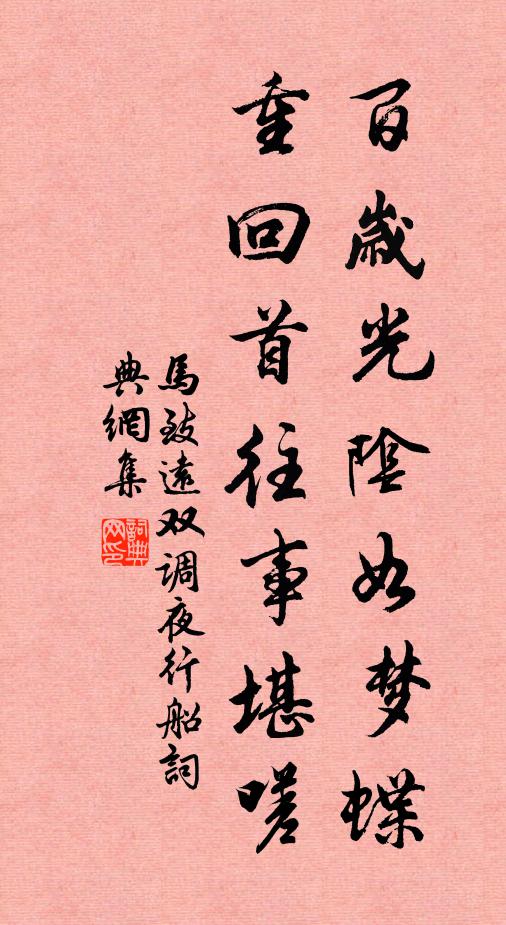 百歲光陰如梦蝶
重回首往事堪嗟
馬致遠双调夜行船詞
典網集
詞典网印